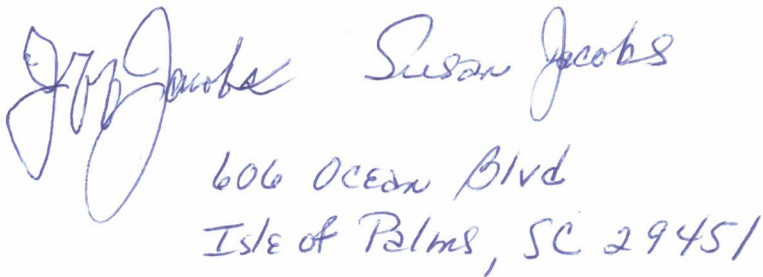 Jeff Jacobs Susan Jacobs
606 Ocean Blvd
Isle of Palms, SC 29451